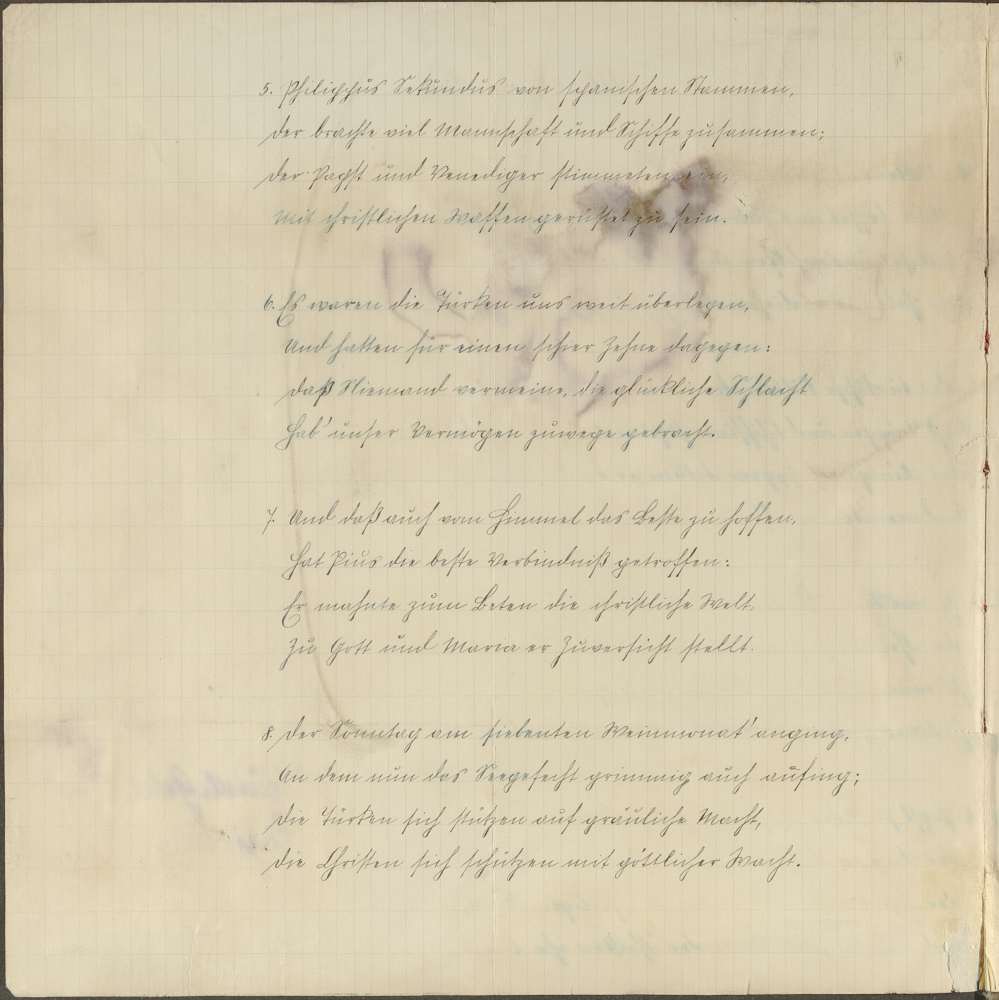 5. Philipphus Sekundus von spanischen Stammen,
Der brachte viel Mannschaft und Schiffe zusammen;
Der Papst und Venediger stimmeten ein,
Mit christlichen Waffen gerüstet zu sein.
6. Es waren die Türken uns weit überlegen,
Und hatten für einen schier Zehne dagegen:
Daß Niemand vermeine, die glückliche Schlacht
Hab' unser Vermögen zuwege gebracht.
7. Und daß auch vom Himmel das Beste zu hoffen,
Hat Pius die beste Verbindniß getroffen:
Er mahnte zum Beten die christliche Welt,
Zu Gott und Maria er Zuversicht stellt.
8. Der Sonntag am siebenten Weinmonat' anging,
An dem nun das Seegefecht grimmig auch anfing;
Die Türken sich stützen auf gräuliche Macht,
Die Christen sich schützen mit göttlicher Wacht.